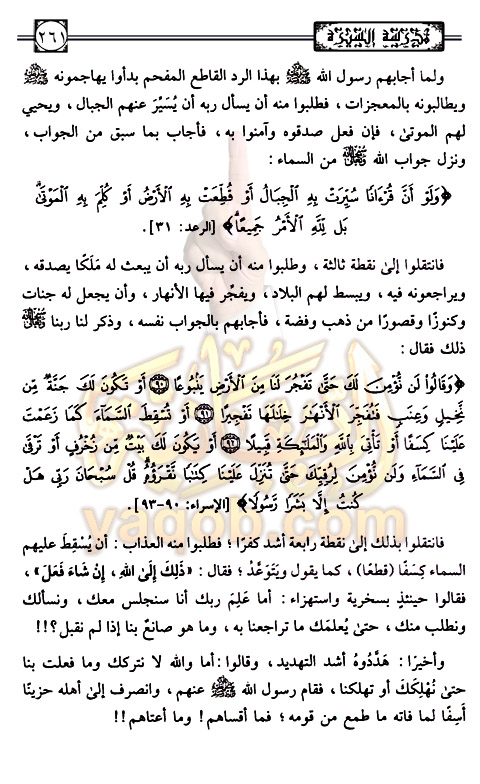 ٢٦١ مدرسة السيرة
ولما أجابهم رسول الله ﷺ بهذا الرد القاطع المفحم بدأوا يهاجمونه ﷺ
ويطالبونه بالمعجزات ، فطلبوا منه أن يسأل ربه أن يُسَيِّرَ عنهم الجبال ، ويحيي
لهم الموتىٰ ، فإن فعل صدقوه وآمنوا به ، فأجاب بما سبق من الجواب ،
ونزل جواب الله من السماء :
﴿وَلَوْ أَنَّ قُرْءَانًا سُيِّرَتْ بِهِ ٱلْجِبَالُ أَوْ قُطِّعَتْ بِهِ ٱلْأَرْضُ أَوْ كُلِّمَ بِهِ ٱلْمَوْتَىٰ ۗ
بَل لِّلَّهِ ٱلْأَمْرُ جَمِيعًا ۗ﴾ [الرعد: ٣١] .
فانتقلوا إلىٰ نقطة ثالثة ، وطلبوا منه أن يسأل ربه أن يبعث له مَلَكًا يصدقه ،
ويراجعونه فيه ، ويبسط لهم البلاد ، ويفجِّر فيها الأنهار ، وأن يجعل له جنات
وكنوزًا وقصورًا من ذهب وفضة ، فأجابهم بالجواب نفسه ، وذكر لنا ربنا
ذلك فقال :
﴿وَقَالُوا۟ لَن نُّؤْمِنَ لَكَ حَتَّىٰ تَفْجُرَ لَنَا مِنَ ٱلْأَرْضِ يَنۢبُوعًا ۝٩٠ أَوْ تَكُونَ لَكَ جَنَّةٌ مِّن
نَّخِيلٍ وَعِنَبٍ فَتُفَجِّرَ ٱلْأَنْهَٰرَ خِلَٰلَهَا تَفْجِيرًا ۝٩١ أَوْ تُسْقِطَ ٱلسَّمَآءَ كَمَا زَعَمْتَ
عَلَيْنَا كِسَفًا أَوْ تَأْتِىَ بِٱللَّهِ وَٱلْمَلَٰٓئِكَةِ قَبِيلًا ۝٩٢ أَوْ يَكُونَ لَكَ بَيْتٌ مِّن زُخْرُفٍ أَوْ تَرْقَىٰ
فِى ٱلسَّمَآءِ وَلَن نُّؤْمِنَ لِرُقِيِّكَ حَتَّىٰ تُنَزِّلَ عَلَيْنَا كِتَٰبًا نَّقْرَؤُهُۥ ۗ قُلْ سُبْحَانَ رَبِّى هَلْ
كُنتُ إِلَّا بَشَرًا رَّسُولًا﴾ [الإسراء: ٩٠-٩٣] .
فانتقلوا بذلك إلىٰ نقطة رابعة أشد كفرًا ؛ فطلبوا منه العذاب : أن يُسْقِطَ عليهم
السماء كِسَفًا (قطعًا) ، كما يقول ويَتَوَعَّدُ ؛ فقال : «ذَلِكَ إِلَىٰ اللهِ ، إِنْ شَاءَ فَعَلَ» ،
فقالوا حينئذٍ بسخرية واستهزاء : أما عَلِمَ ربك أنا سنجلس معك ، ونسألك
ونطلب منك ، حتىٰ يُعلمَك ما تراجعنا به ، وما هو صانعٌ بنا إذا لم نقبل؟!!
وأخيرًا : هَدَّدُوه أشد التهديد ، وقالوا : أما والله لا نتركك وما فعلت بنا
حتىٰ نُهْلِكَكَ أو تهلكنا ، فقام رسول الله ﷺ عنهم ، وانصرف إلىٰ أهله حزينًا
أَسِفًا لما فاته ما طمع من قومه ؛ فما أقساهم! وما أعتاهم!!
yaqob.com